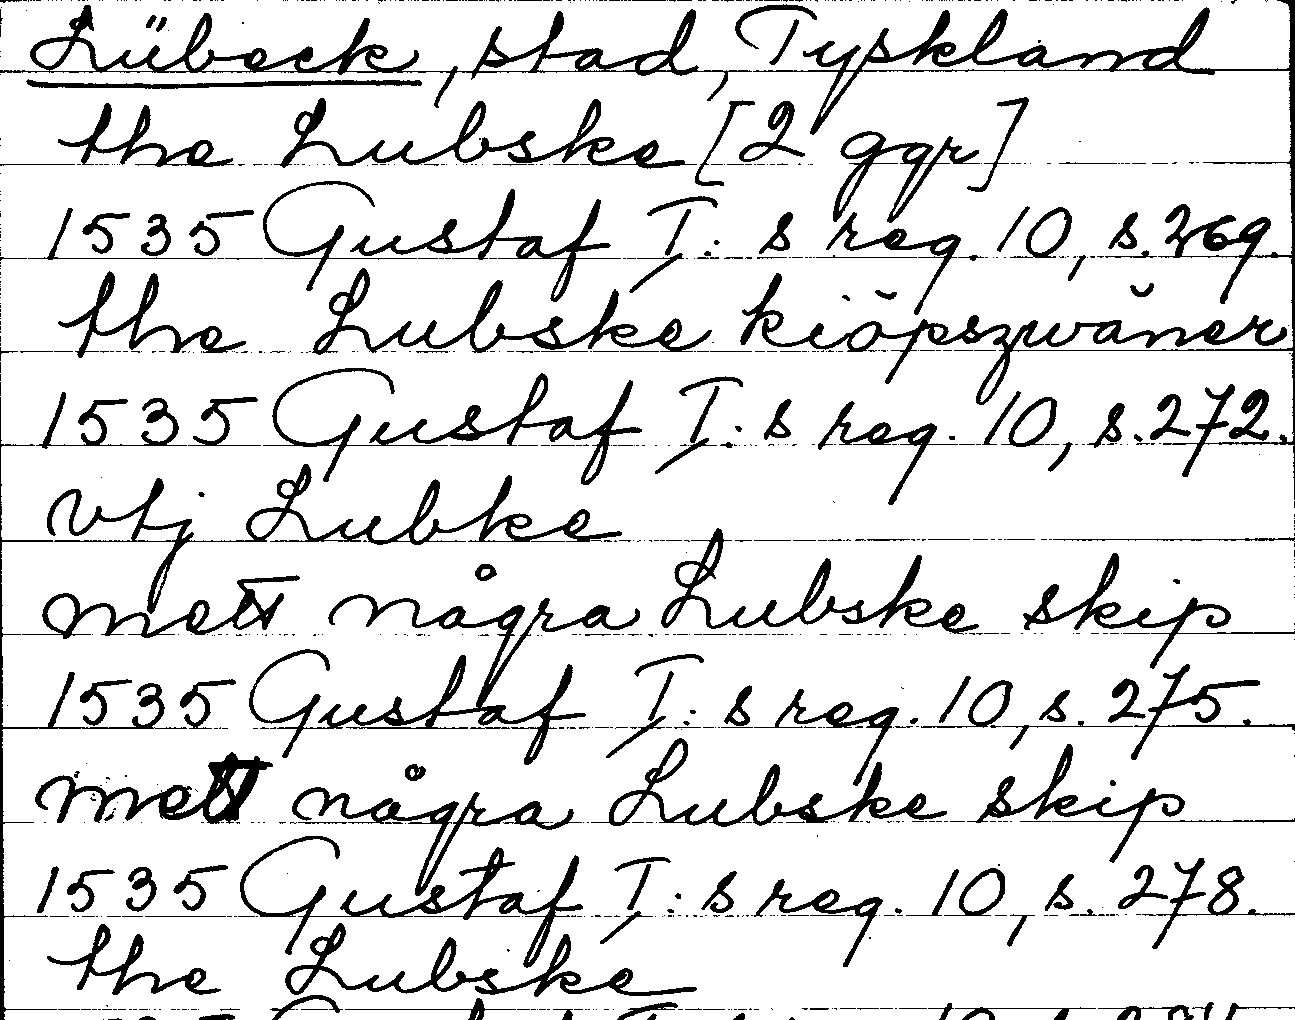 Lübeck, stad, Tyskland
the Lubske [2 ggr]
1535 Gustaf I: s reg. 10, s. 269.
the Lubske kiöpszwäner
1535 Gustaf I: s reg. 10, s. 272.
vtj Lubke
mett några Lubske skip
1535 Gustaf I: s reg. 10, s. 275.
mett några Lubske skip
1535 Gustaf I: s reg. 10, s. 278.
the Lubske